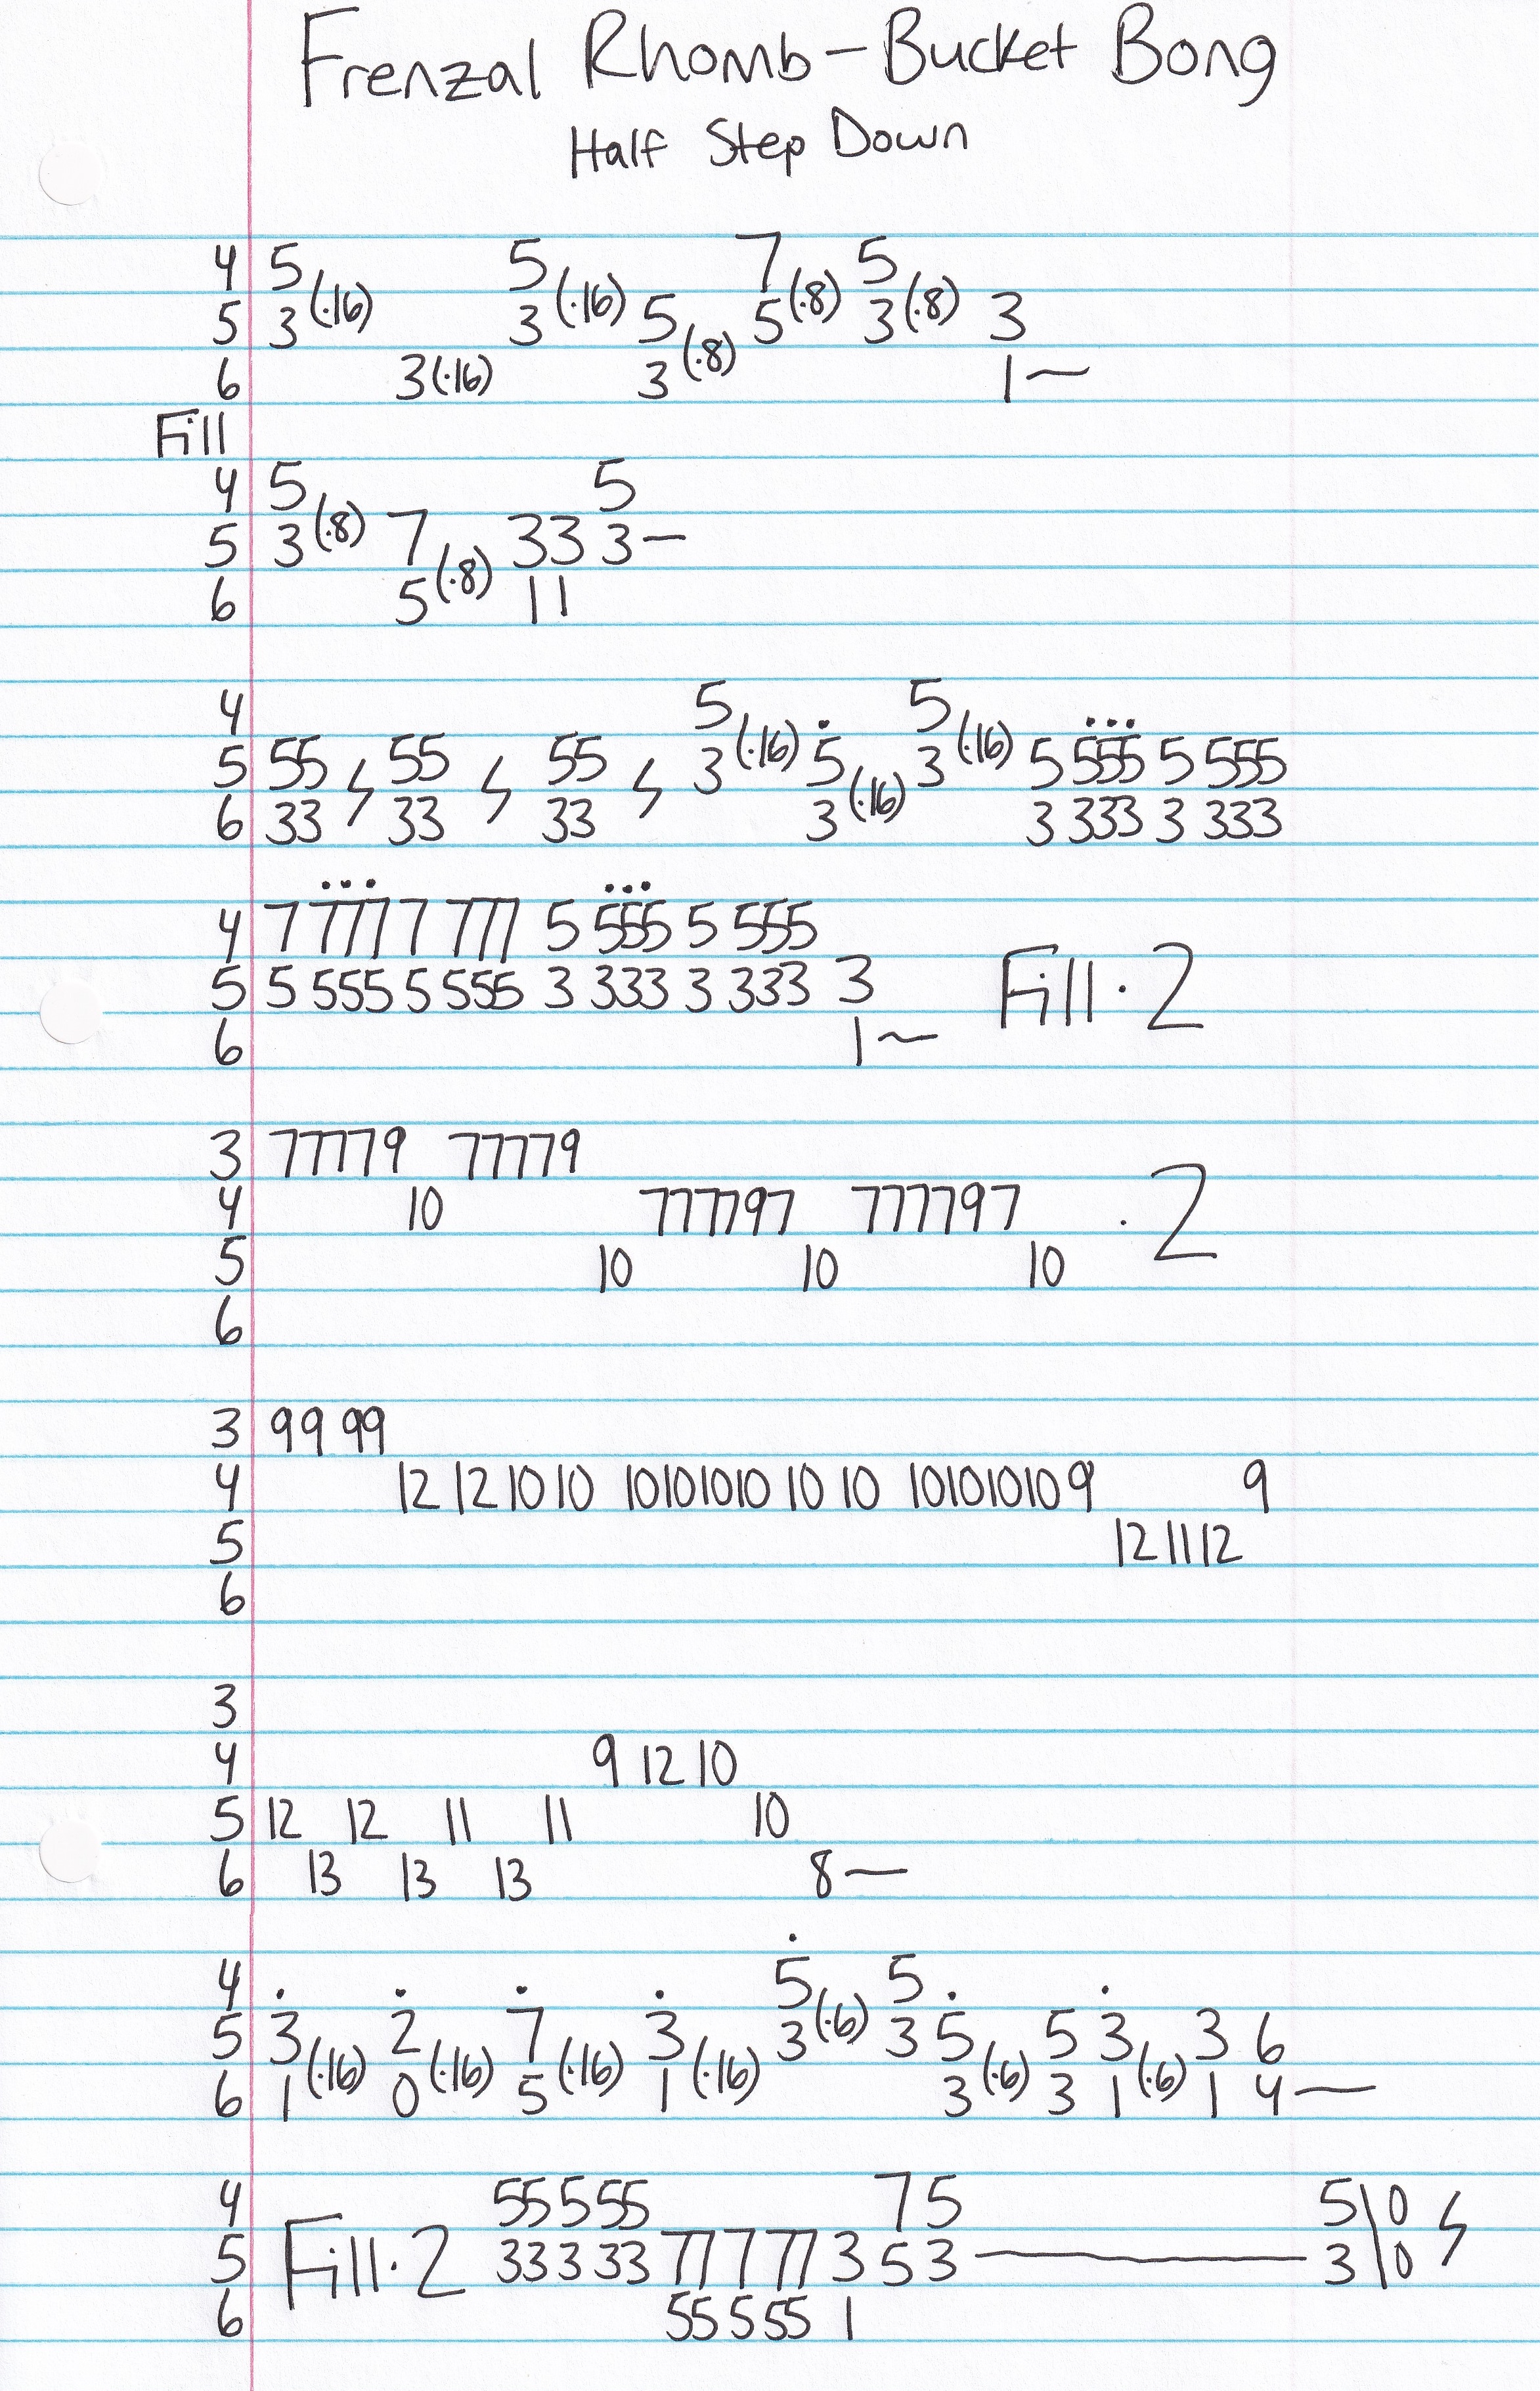 Frenzal Rhomb - Bucket Bong
Half Step Down
4 5 5 7 5
5 3 (·16) 3 (·16) 5 5 (·8) 3 (·8) 3
6 3 (·16) 3 (·8) 1 ~
Fill
4 5 5
5 3 (·8) 7 33 3 —
6 5 (·8) 11
4 5 5
5 55 55 55 3 (·16) 5 3 (·16) 5 555 5 555
6 33 33 33 3 (·16) 3 333 3 333
4 7 777 7 777 5 555 5 555
5 5 555 5 555 3 333 3 333 3 Fill · 2
6 1 ~
3 77779 77779
4 10 777797 777797 · 2
5 10 10 10
6
3 99 99
4 12 12 10 10 10101010 10 10 10101010 9 9
5 12 11 12
6
3
4 9 12 10
5 12 12 11 11 10
6 13 13 13 8 —
4 5 5
5 3 2 7 3 3 (·6) 3 5 5 3 3 6
6 1 (·16) 0 (·16) 5 (·16) 1 (·16) 3 (·6) 3 1 (·6) 1 4 —
4 55 5 55 7 5 5 \ 0
5 Fill · 2 33 3 33 77 7 77 3 5 3 — 3 \ 0
6 55 5 55 1